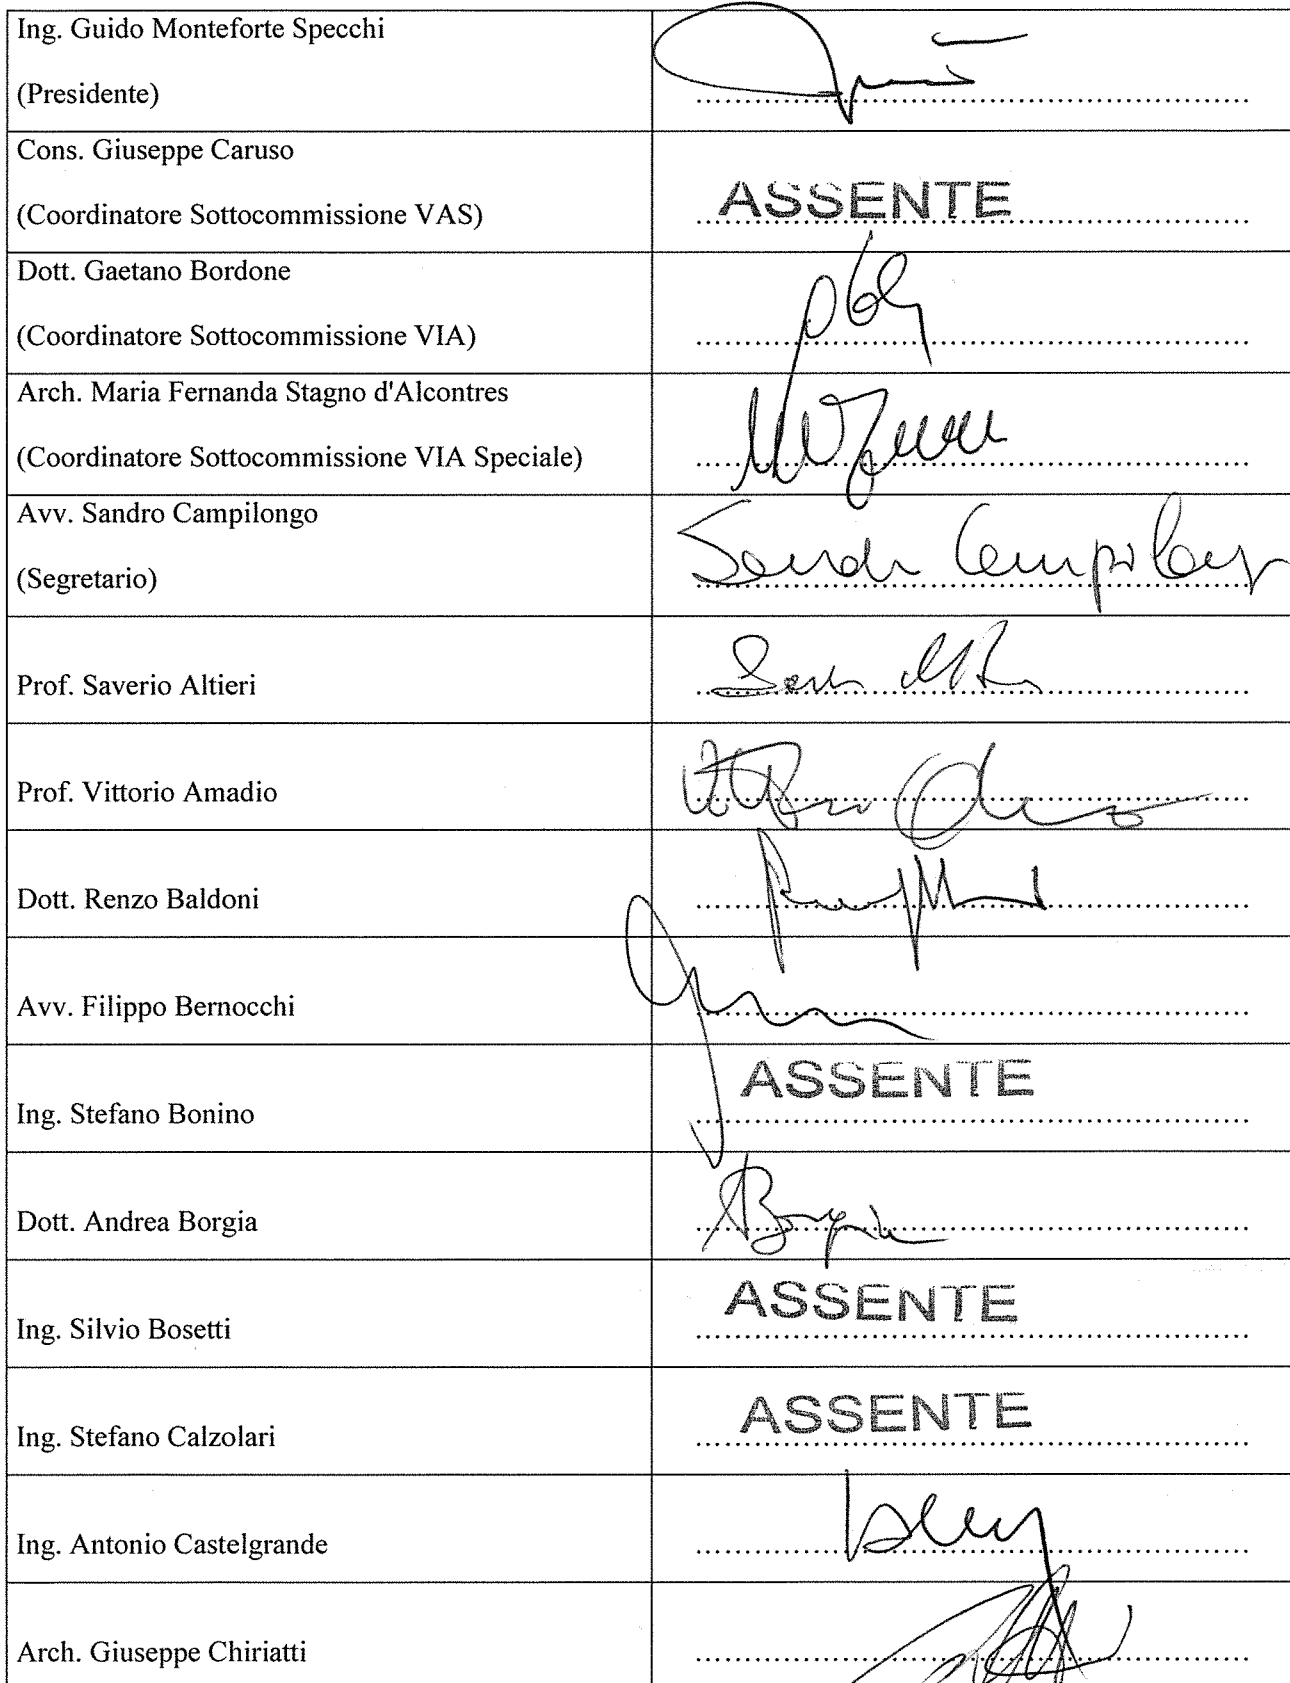 Ing. Guido Monteforte Specchi
(Presidente)
Cons. Giuseppe Caruso
(Coordinatore Sottocommissione VAS)
ASSENTE
Dott. Gaetano Bordone
(Coordinatore Sottocommissione VIA)
Arch. Maria Fernanda Stagno d'Alcontres
(Coordinatore Sottocommissione VIA Speciale)
Avv. Sandro Campilongo
(Segretario)
Prof. Saverio Altieri
Prof. Vittorio Amadio
Dott. Renzo Baldoni
Avv. Filippo Bernocchi
Ing. Stefano Bonino
ASSENTE
Dott. Andrea Borgia
Ing. Silvio Bosetti
ASSENTE
Ing. Stefano Calzolari
ASSENTE
Ing. Antonio Castelgrande
Arch. Giuseppe Chiriatti